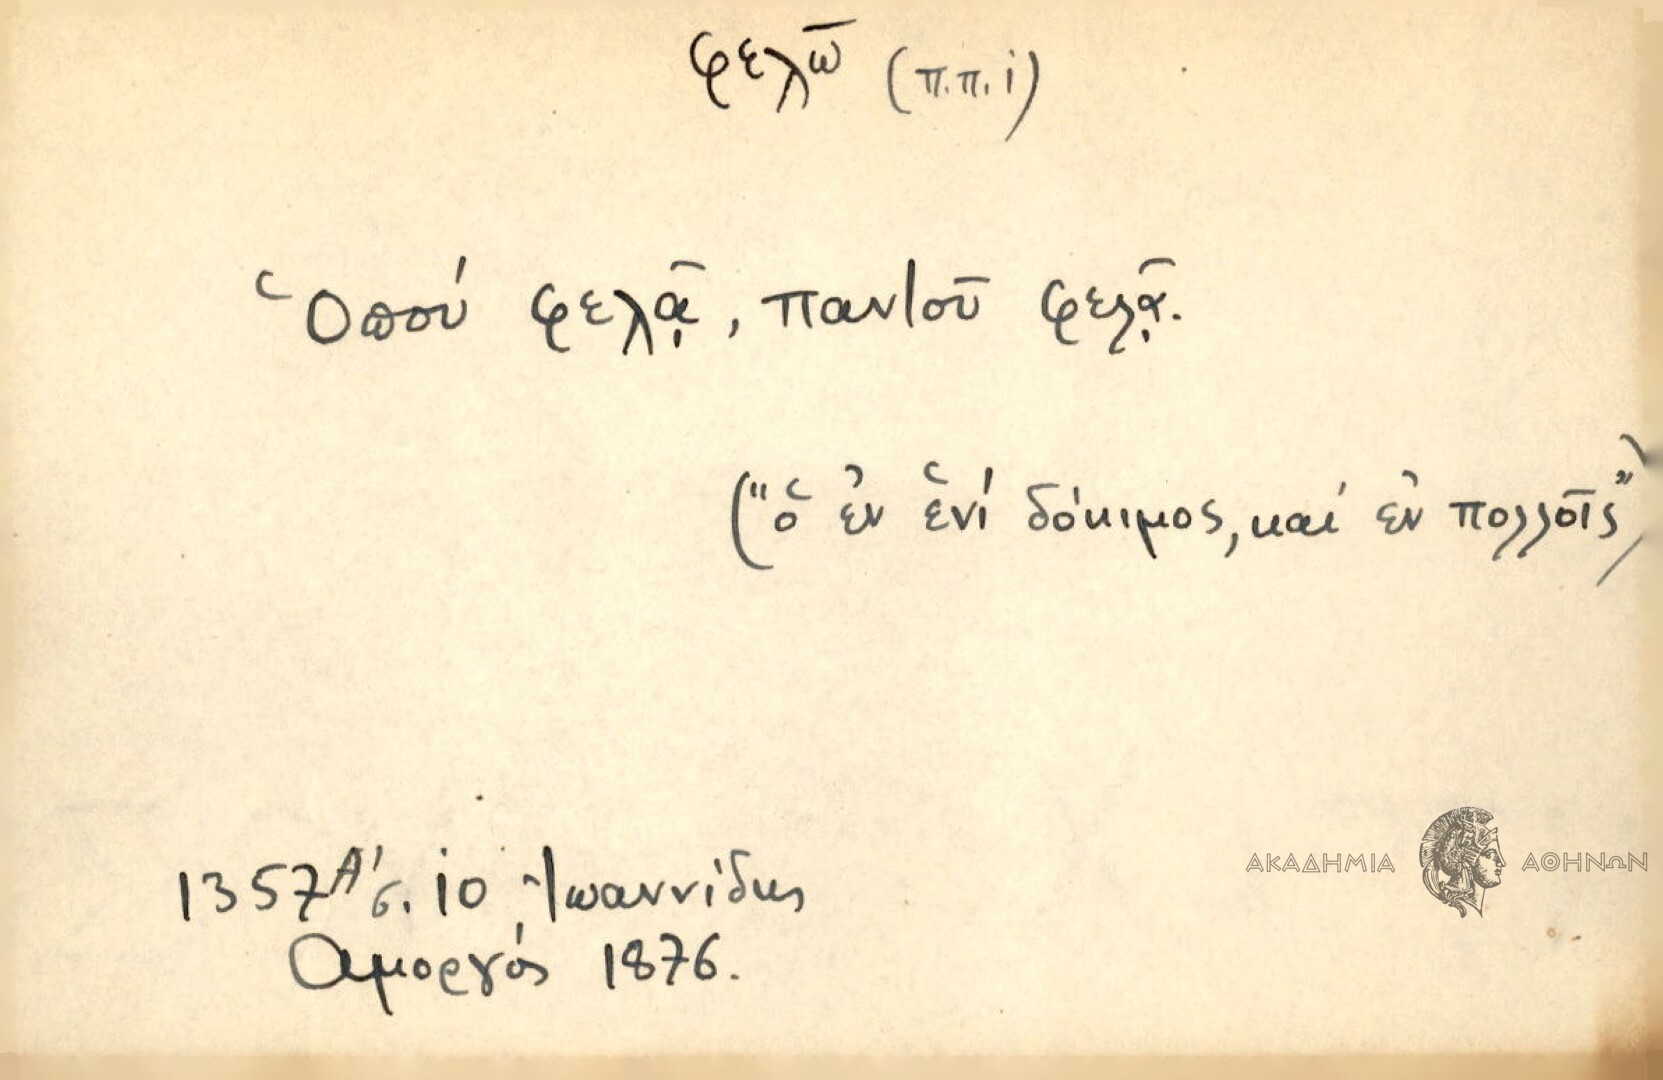 φελῶ (π.π. i)
Ὁποὺ φελᾷ, παντοῦ φελᾷ.
("ὁ ἐν ἑνί δόκιμος, καί ἐν πολλοῖς")
1357 Α' σ. 10 Ἰωαννίδης
Ἀμοργός 1876.
ΑΚΑΔΗΜΙΑ ΑΘΗΝΩΝ